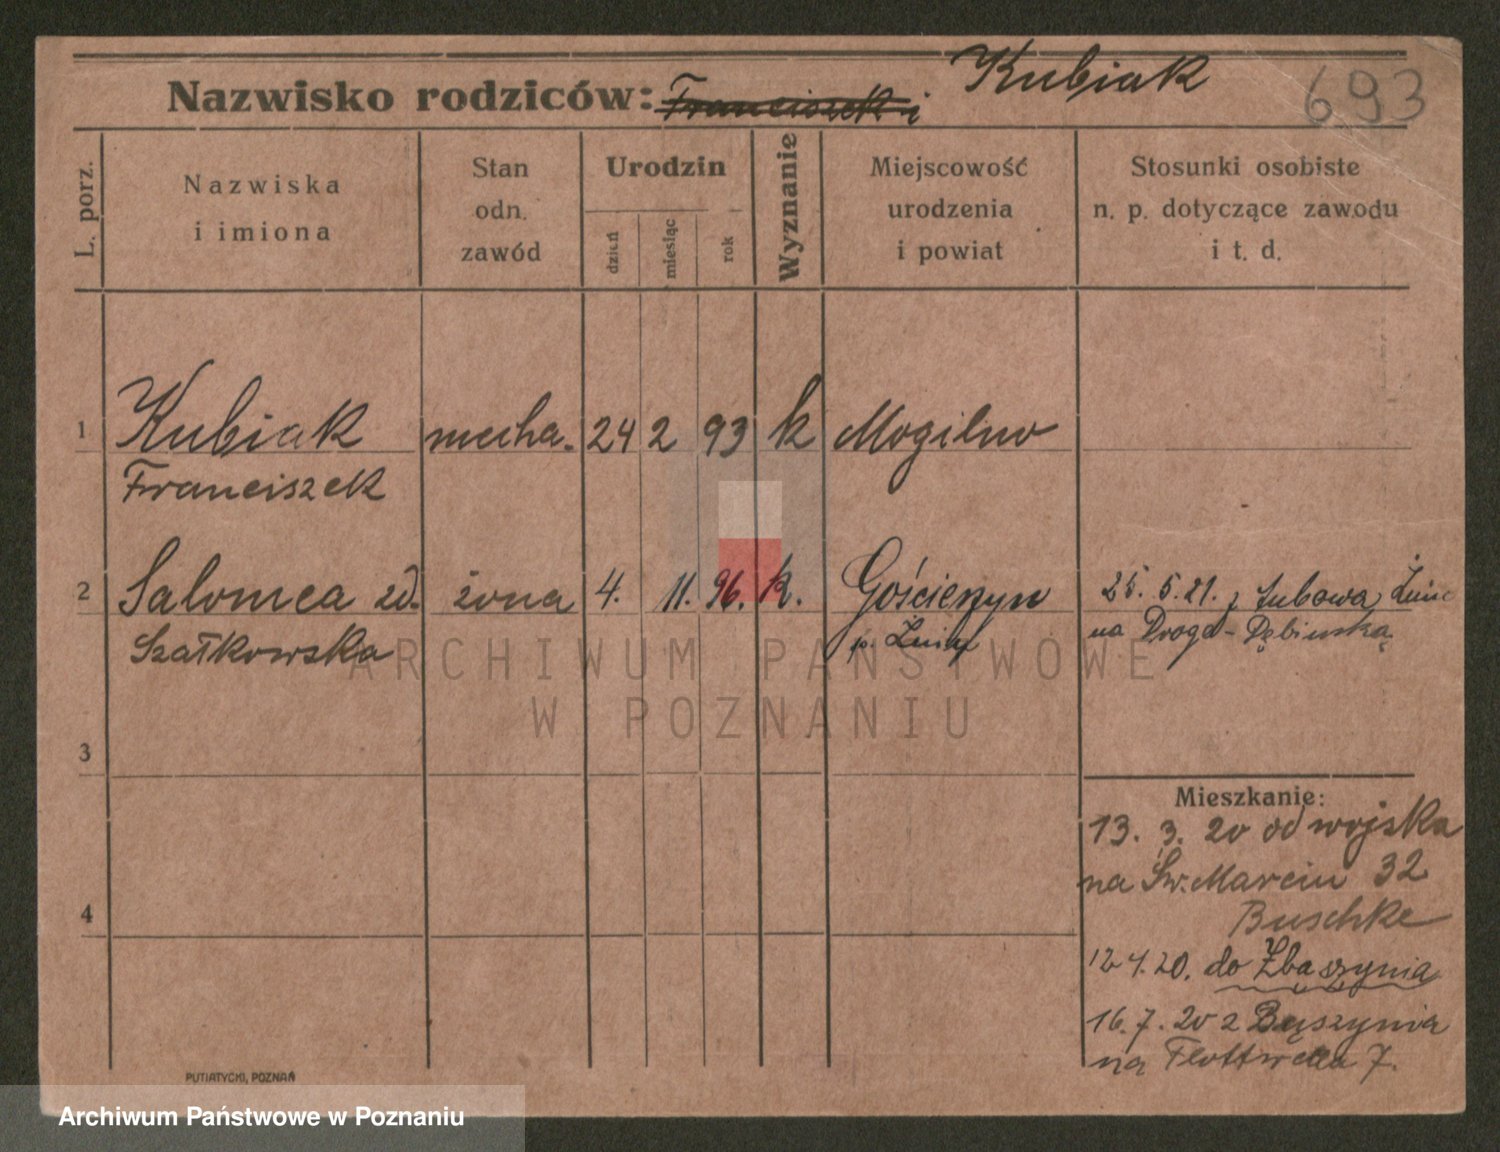 Nazwisko rodziców: Franciszek i Kubiak
693
L. porz.
Nazwiska
i imiona
Stan
odn.
zawód
Urodzin
dzień
miesiąc
rok
Wyznanie
Miejscowość
urodzenia
i powiat
Stosunki osobiste
n. p. dotyczące zawodu
i t. d.
1 Kubiak mecha. 24 2 93 k Mogilno
Franciszek
2 Salomea zd. żona 4. 11. 96. k. Gościeszyn 25. 5. 21. z
Szałkowska p. Żnin na Droga-Dębińską
3
Mieszkanie:
13. 3. 20 od wojska
na Św. Marcin 32
Buschke
4
12 4. 20. do Zbąszynia
16. 7. 20 z
na Flottwella 7.
PUTIATYCKI, POZNAŃ
ARCHIWUM PAŃSTWOWE
W POZNANIU
Archiwum Państwowe w Poznaniu